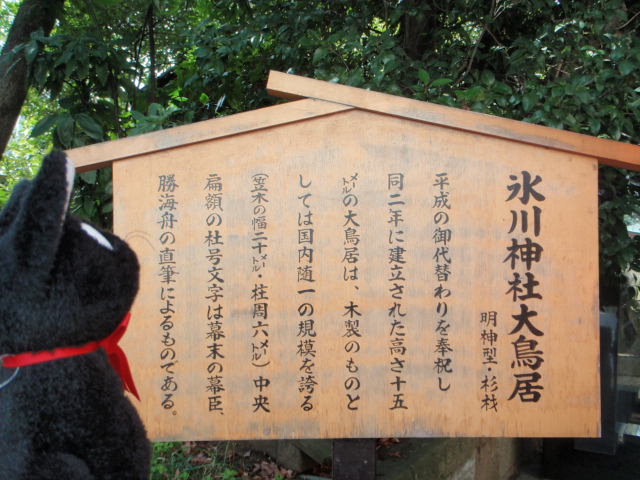 氷川神社大鳥居
明神型・杉材
平成の御代替わりを奉祝し
同二年に建立された高さ十五
㍍の大鳥居は、木製のものと
しては国内随一の規模を誇る
（笠木の幅二十㍍・柱周六㍍）中央
扁額の社号文字は幕末の幕臣、
勝海舟の直筆によるものである。